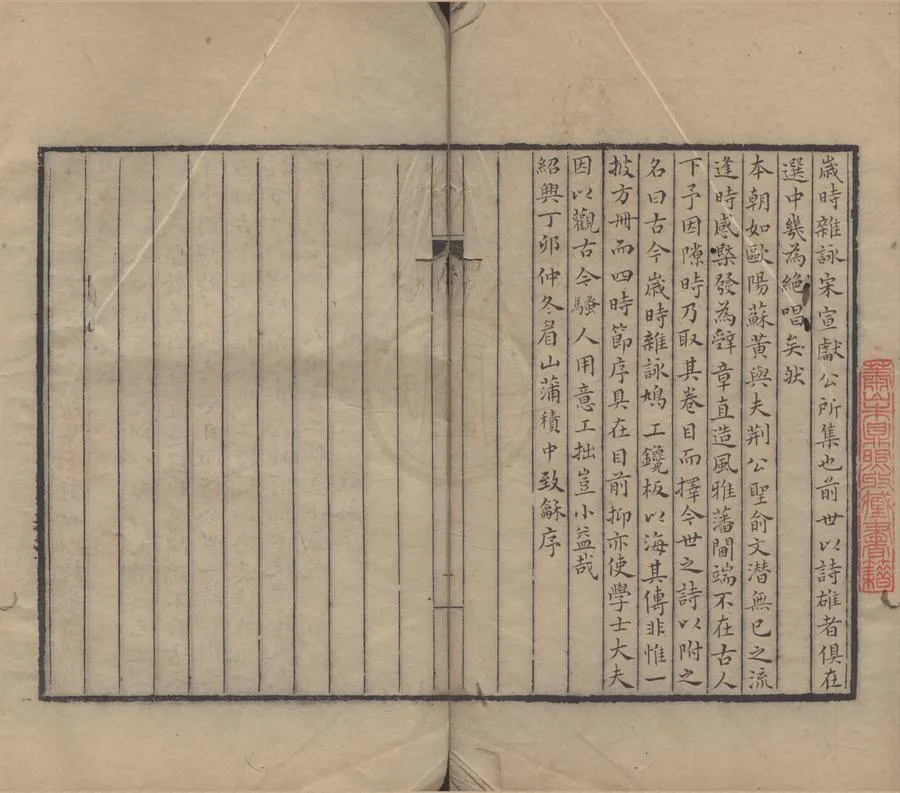 歲時雜詠宋宣獻公所集也前世以詩雄者俱在
選中幾為絕唱矣然
本朝如歐陽蘇黃與夫荆公聖俞文潜無已之流
逢時感槩發為辭章直造風雅藩閫端不在古人
下予因隙時乃取其卷目而擇今世之詩以附之
名曰古今歲時雜詠鳩工鑱板以海其傳非惟一
披方冊而四時節序具在目前抑亦使學士大夫
因以觀古今騷人用意工拙豈小益哉
紹興丁卯仲冬眉山蒲積中致龢序
序